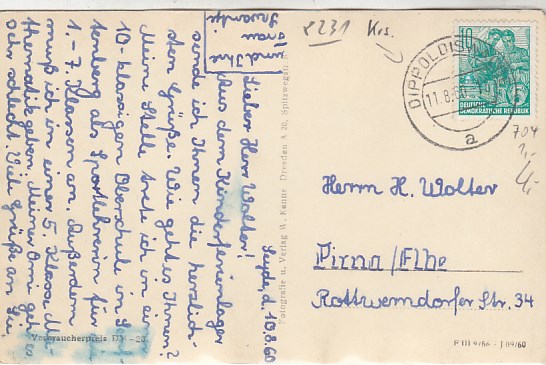 Seyde, d. 10.8.60
Lieber Herr Wolter!
Aus dem Kinderferienlager
sende ich Ihnen die herzlich-
sten Grüße. Wie geht es Ihnen?
Meine Stelle trete ich in einer
10-klassigen Oberschule in
tenberg als Sportlehrerin für
1.-7. Klassen an. Außerdem
muß ich in einer 5. Klasse Ma-
thematik geben. Meiner Omi geht es
sehr schlecht. Viele Grüße an Sie
und Ihre
Frau
Fotografie u. Verlag W. Kenne Dresden A 20, Spitzwegstr.
Verbraucherpreis DM -20
8231 Krs.
10
DEUTSCHE
DEMOKRATISCHE REPUBLIK
DIPPOLDIS
11.8.60
a
704
Herrn H. Wolter
Pirna/Elbe
Rottwerndorfer Str. 34
F III 9/66 - J 09/60